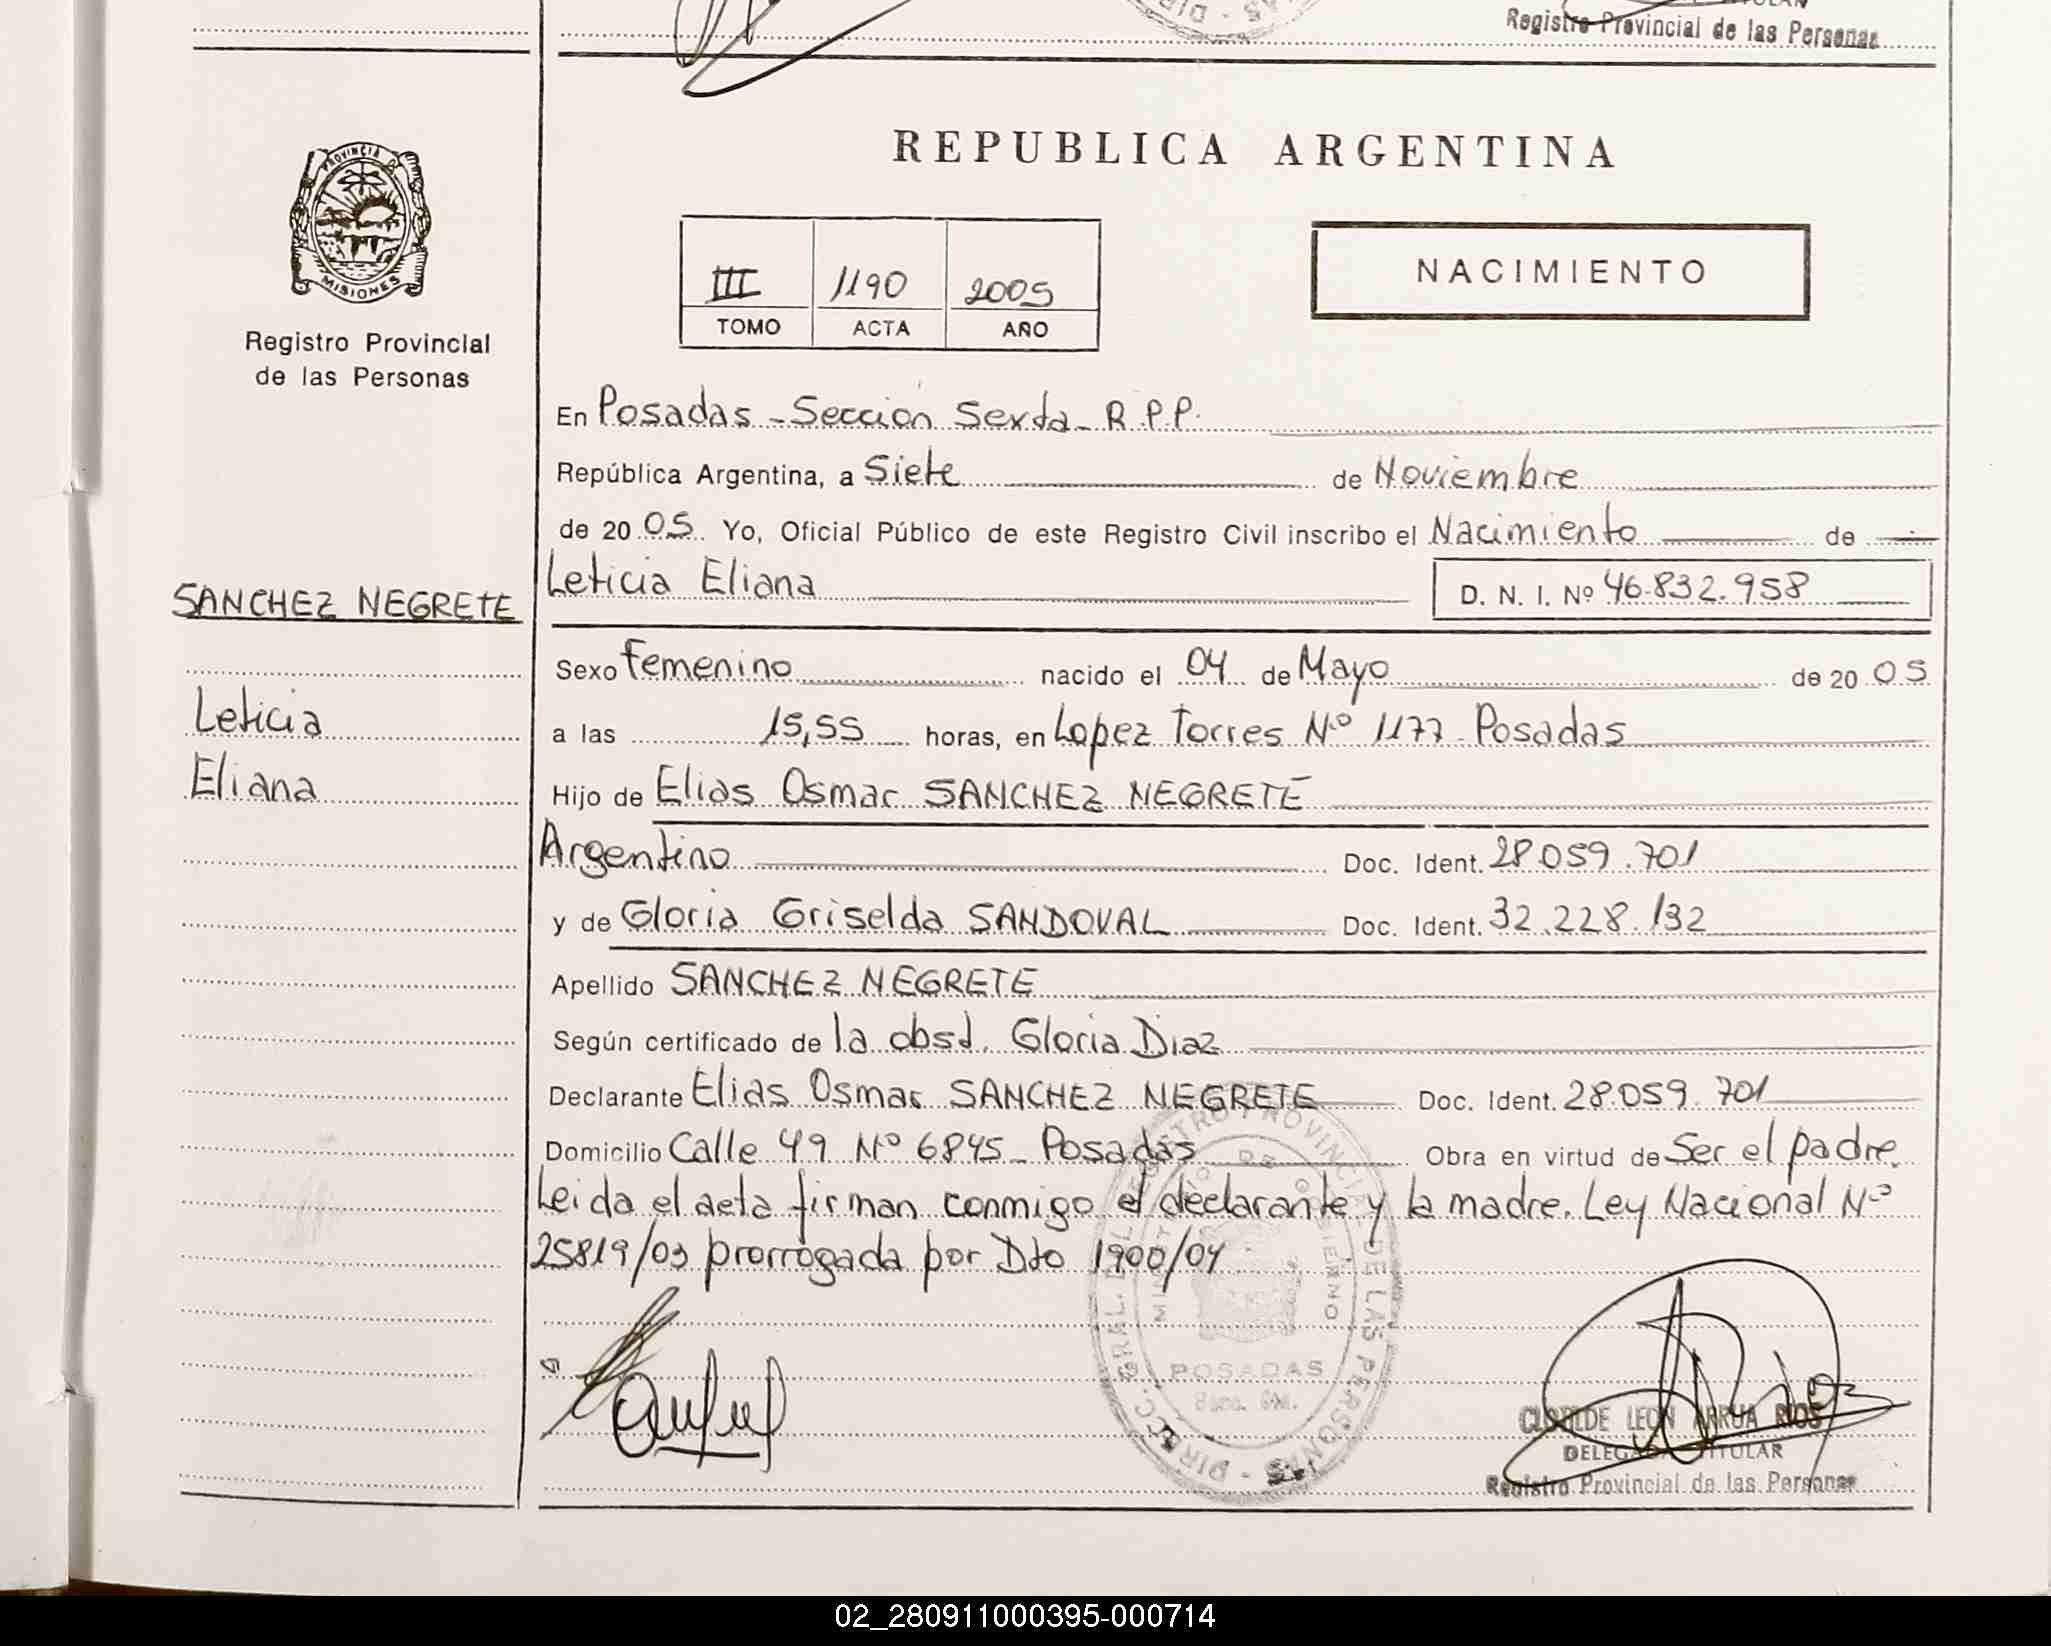 Registro Provincial de las Personas
REPUBLICA ARGENTINA
PROVINCIA DE
MISIONES
Registro Provincial
de las Personas
III 1190 2005
TOMO ACTA AÑO
NACIMIENTO
En Posadas - Sección Sexta - R.P.P.
República Argentina, a Siete de Noviembre
de 2005 Yo, Oficial Público de este Registro Civil inscribo el Nacimiento de
SANCHEZ NEGRETE
Leticia Eliana D. N. I. Nº 46.832.958
Sexo Femenino nacido el 04 de Mayo de 2005
Leticia
a las 15,55 horas, en Lopez Torres Nº 1177 - Posadas
Eliana
Hijo de Elias Osmar SANCHEZ NEGRETE
Argentino Doc. Ident. 28.059.701
y de Gloria Griselda SANDOVAL Doc. Ident. 32.228.132
Apellido SANCHEZ NEGRETE
Según certificado de la obsd. Gloria Diaz
Declarante Elias Osmar SANCHEZ NEGRETE Doc. Ident. 28.059.701
Domicilio Calle 49 Nº 6845 - Posadas Obra en virtud de Ser el padre.
Leida el acta firman conmigo el declarante y la madre. Ley Nacional Nº
25819/03 prorrogada por Dto 1900/04
DIRECC. GRAL. DEL REGISTRO PROVINCIAL DE LAS PERSONAS
MINISTERIO DE GOBIERNO
POSADAS
CLOTILDE LEON ARRUA RIOS
DELEGADA TITULAR
Registro Provincial de las Personas
02_280911000395-000714